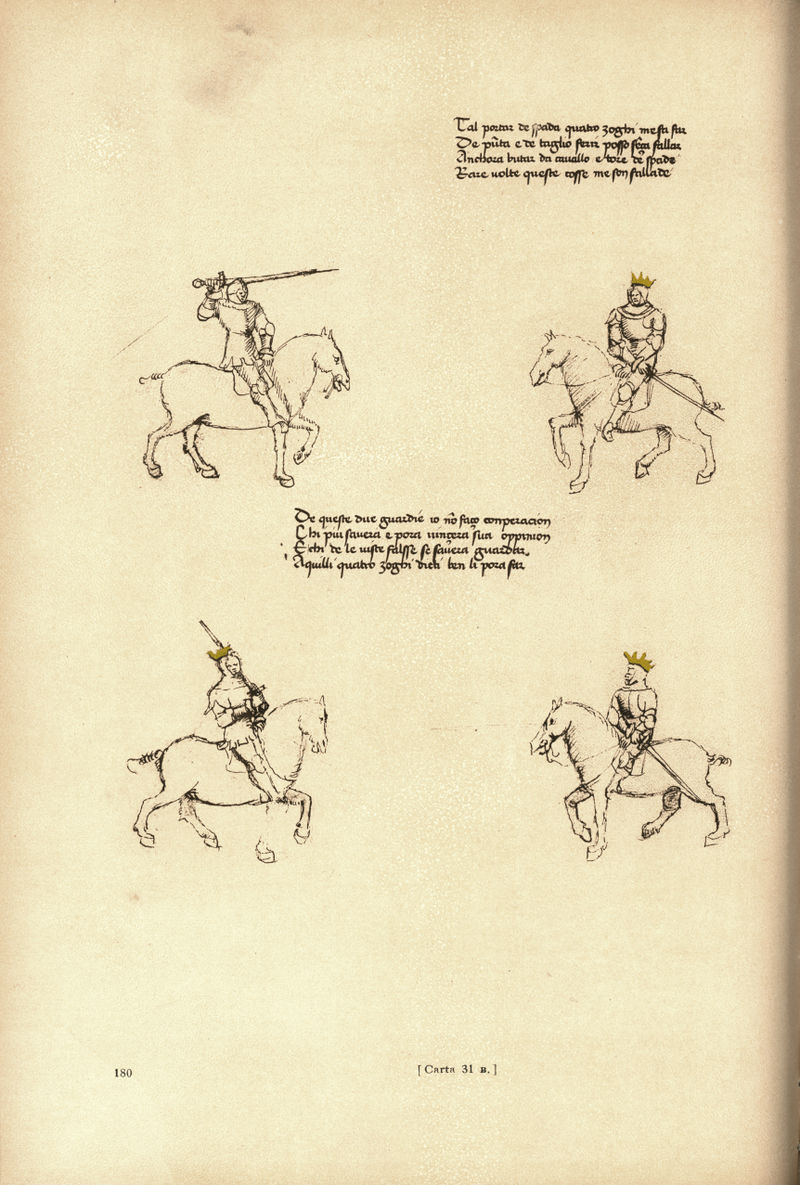 Tal portar de spada quatro zoghi me fa far
De pūta e de taglio ferir posso sēça fallar
Anchora butar da cavallo e tore de spade
Rare volte queste cosse me son fallade
De queste due guardie io nō faço conperacion
Chi piu savera e pora vincera sua oppinion
E chi de le viste falsse se savera guardar
Aquilli quatro zoghi diti ben li pora far
180
[Carta 31 B.]